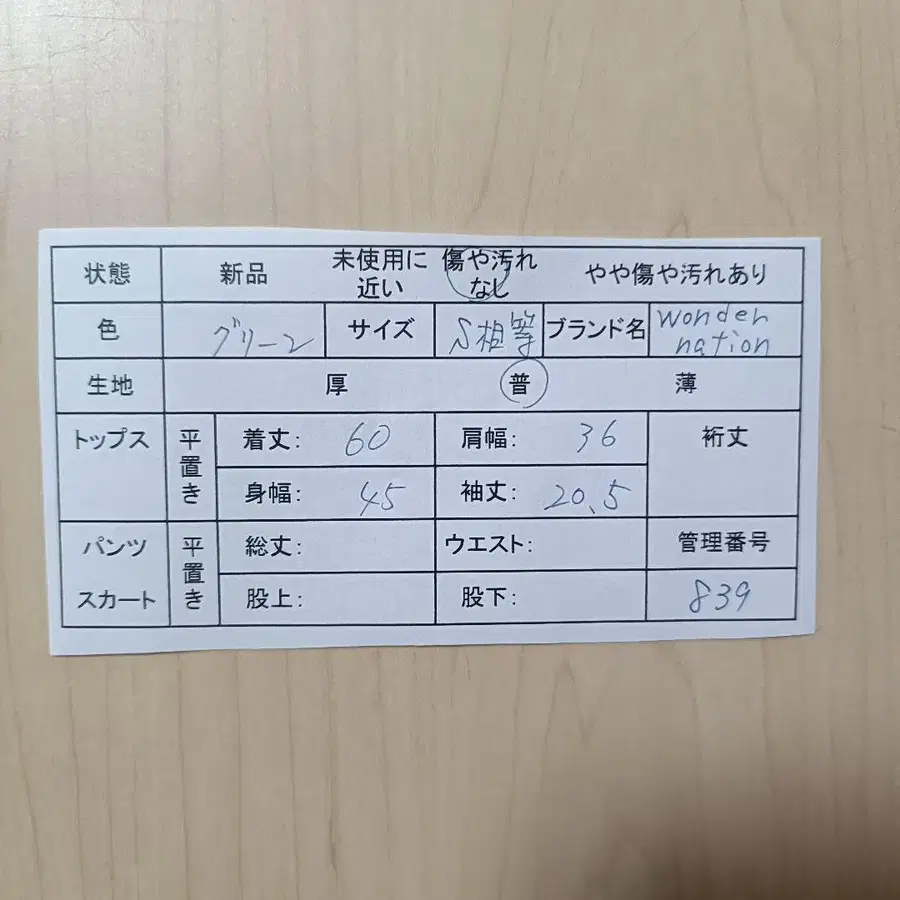 状態 新品 未使用に近い 傷や汚れなし やや傷や汚れあり
色 グリーン サイズ S相等 ブランド名 wonder nation
生地 厚 普 薄
トップス 平置き 着丈: 60 肩幅: 36 裄丈
身幅: 45 袖丈: 20.5
パンツ スカート 平置き 総丈: ウエスト: 管理番号
股上: 股下: 839